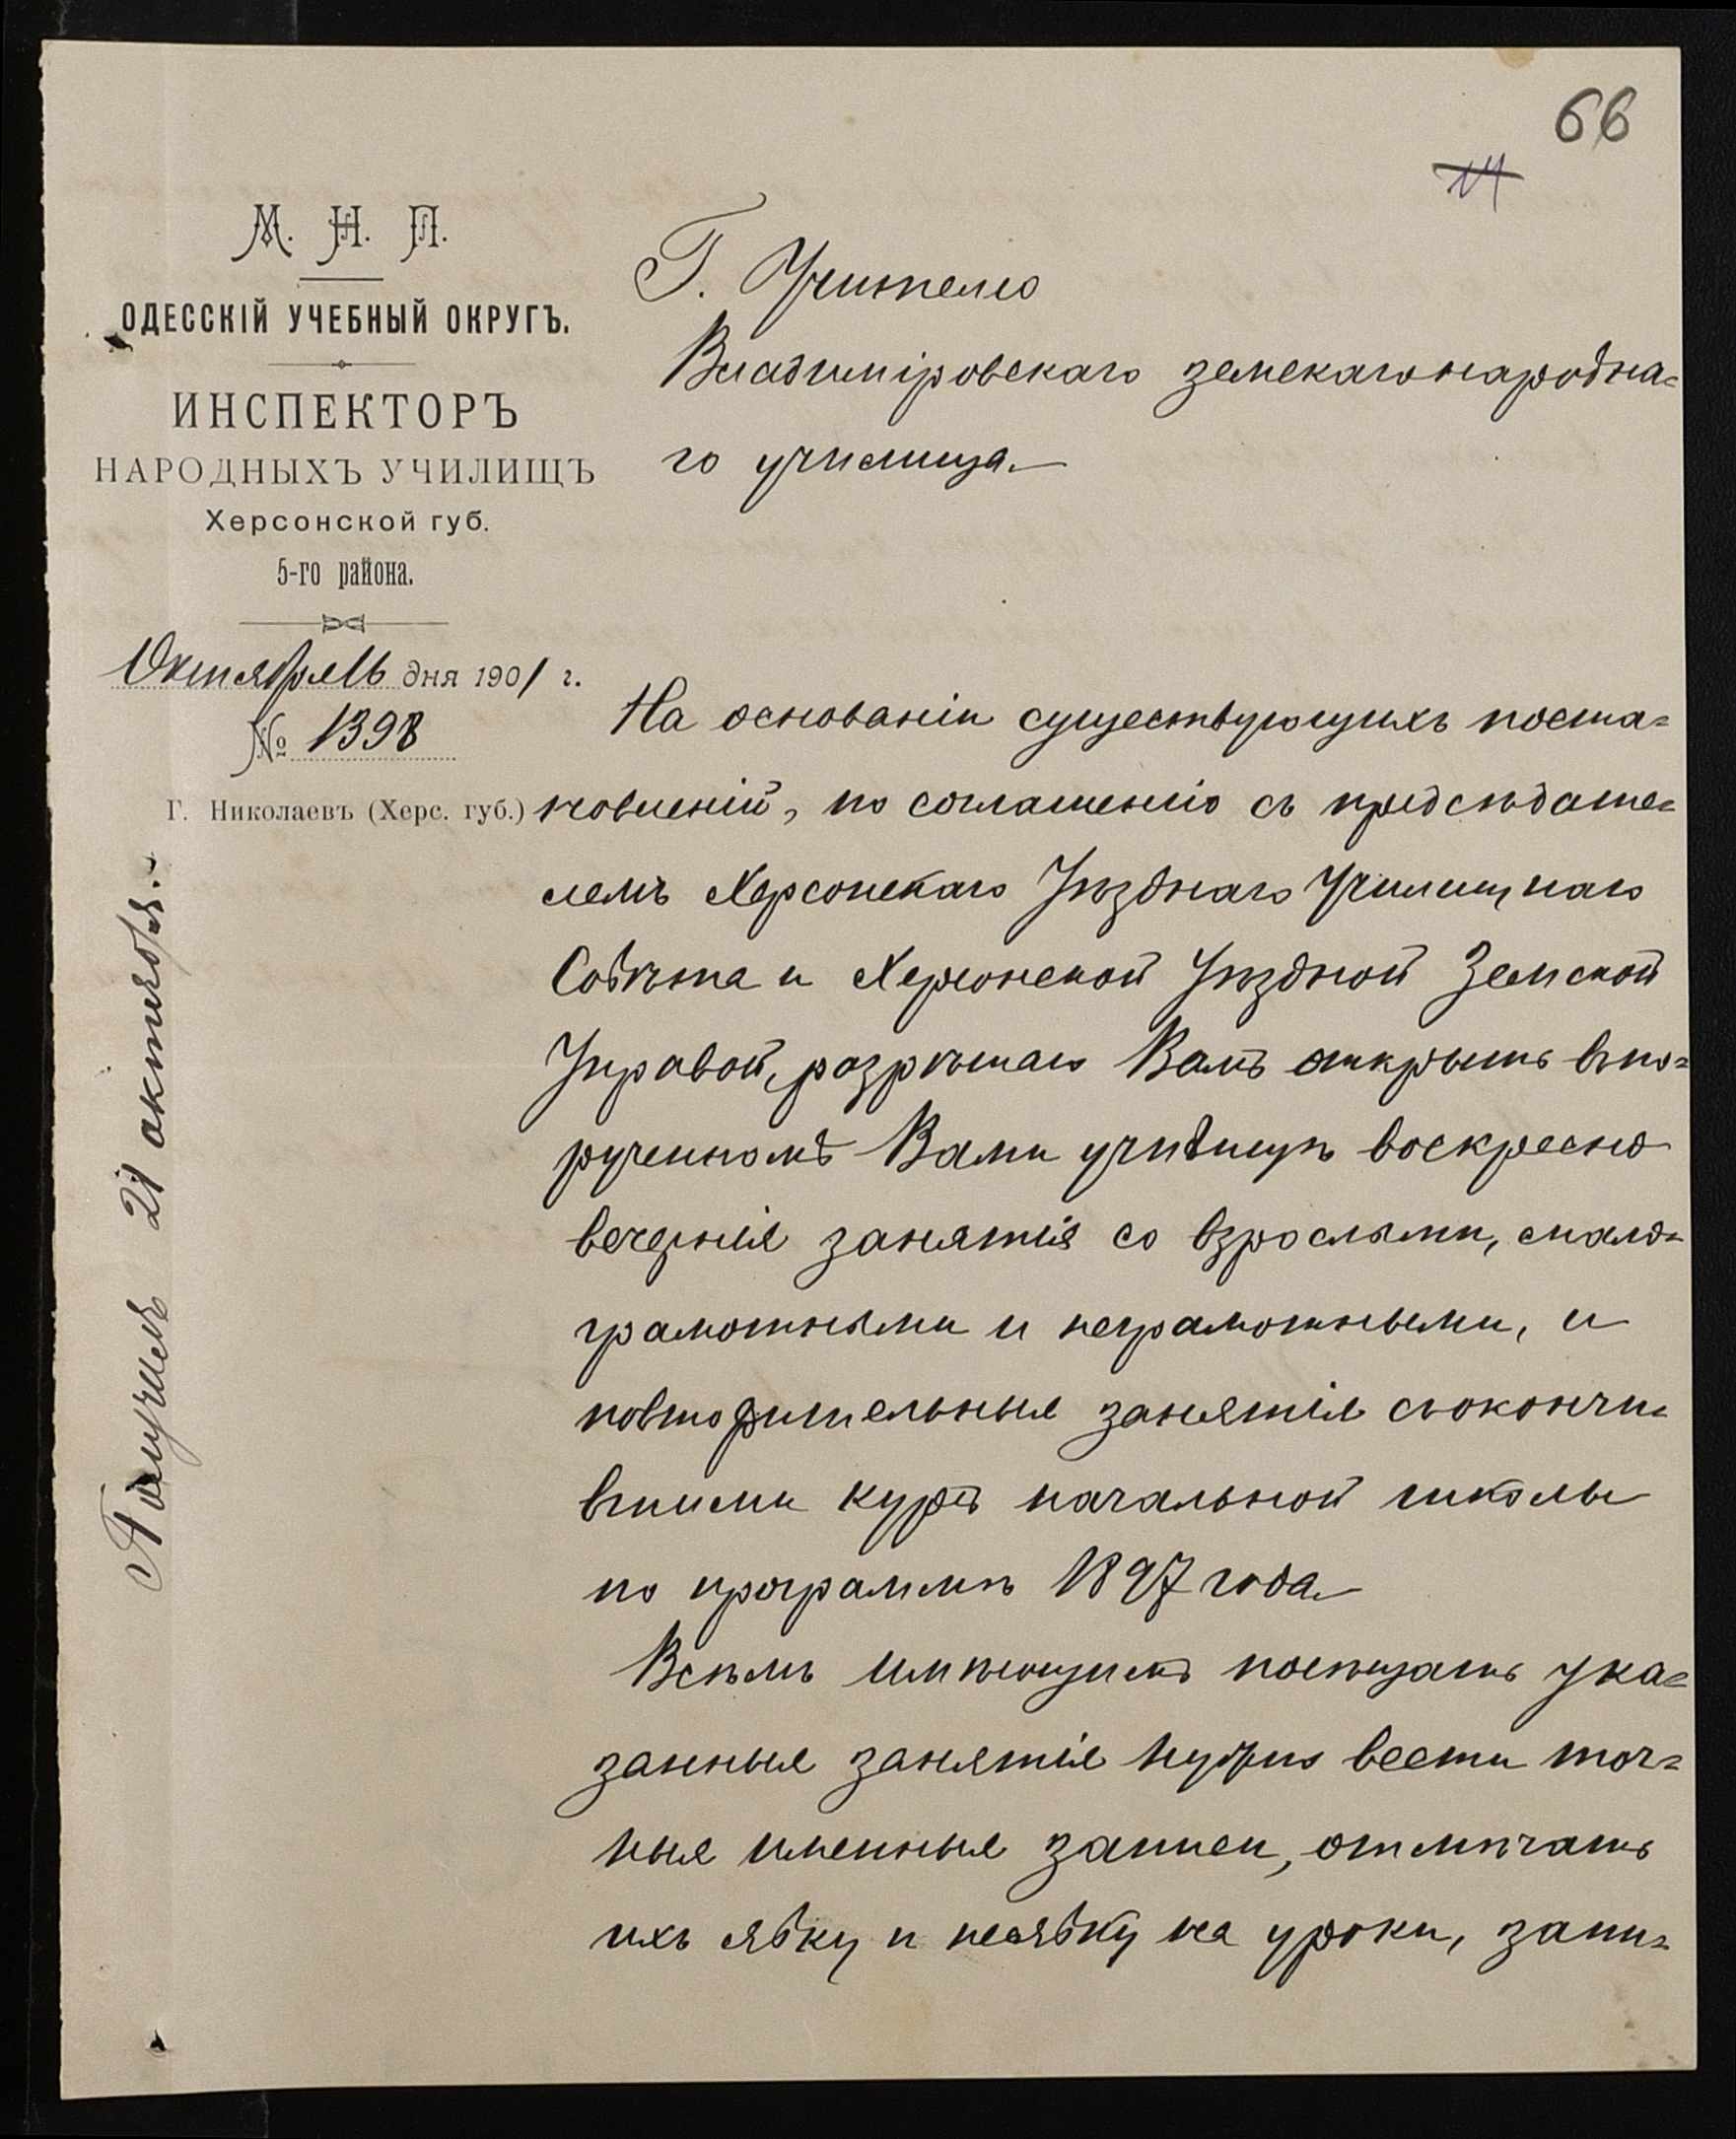 66
14
М. Н. П.
ОДЕССКІЙ УЧЕБНЫЙ ОКРУГЪ.
ИНСПЕКТОРЪ
НАРОДНЫХЪ УЧИЛИЩЪ
Херсонской губ.
5-го района.
Октября 16 дня 1901 г.
№ 1398
Г. Николаевъ (Херс. губ.)
Получена 21 октября.
Г. Учителю
Владимировскаго земскаго народна=
го училища.
На основаніи существующихъ поста=
новленій, по соглашенію съ предсѣдате=
лемъ Херсонскаго Уѣзднаго Училищнаго
Совѣта и Херсонской Уѣздной Земской
Управой, разрѣшаю Вамъ открыть въ по=
рученномъ Вамъ училищѣ воскресно
вечернія занятія со взрослыми, мало=
грамотными и неграмотными, и
повторительныя занятія съ окончи=
вшими курсъ начальной школы
по программѣ 1897 года.
Всѣмъ имѣющимъ посѣщать ука=
занныя занятія нужно вести точ=
ныя именныя записи, отмѣчать
ихъ явку и неявку на уроки, запи=